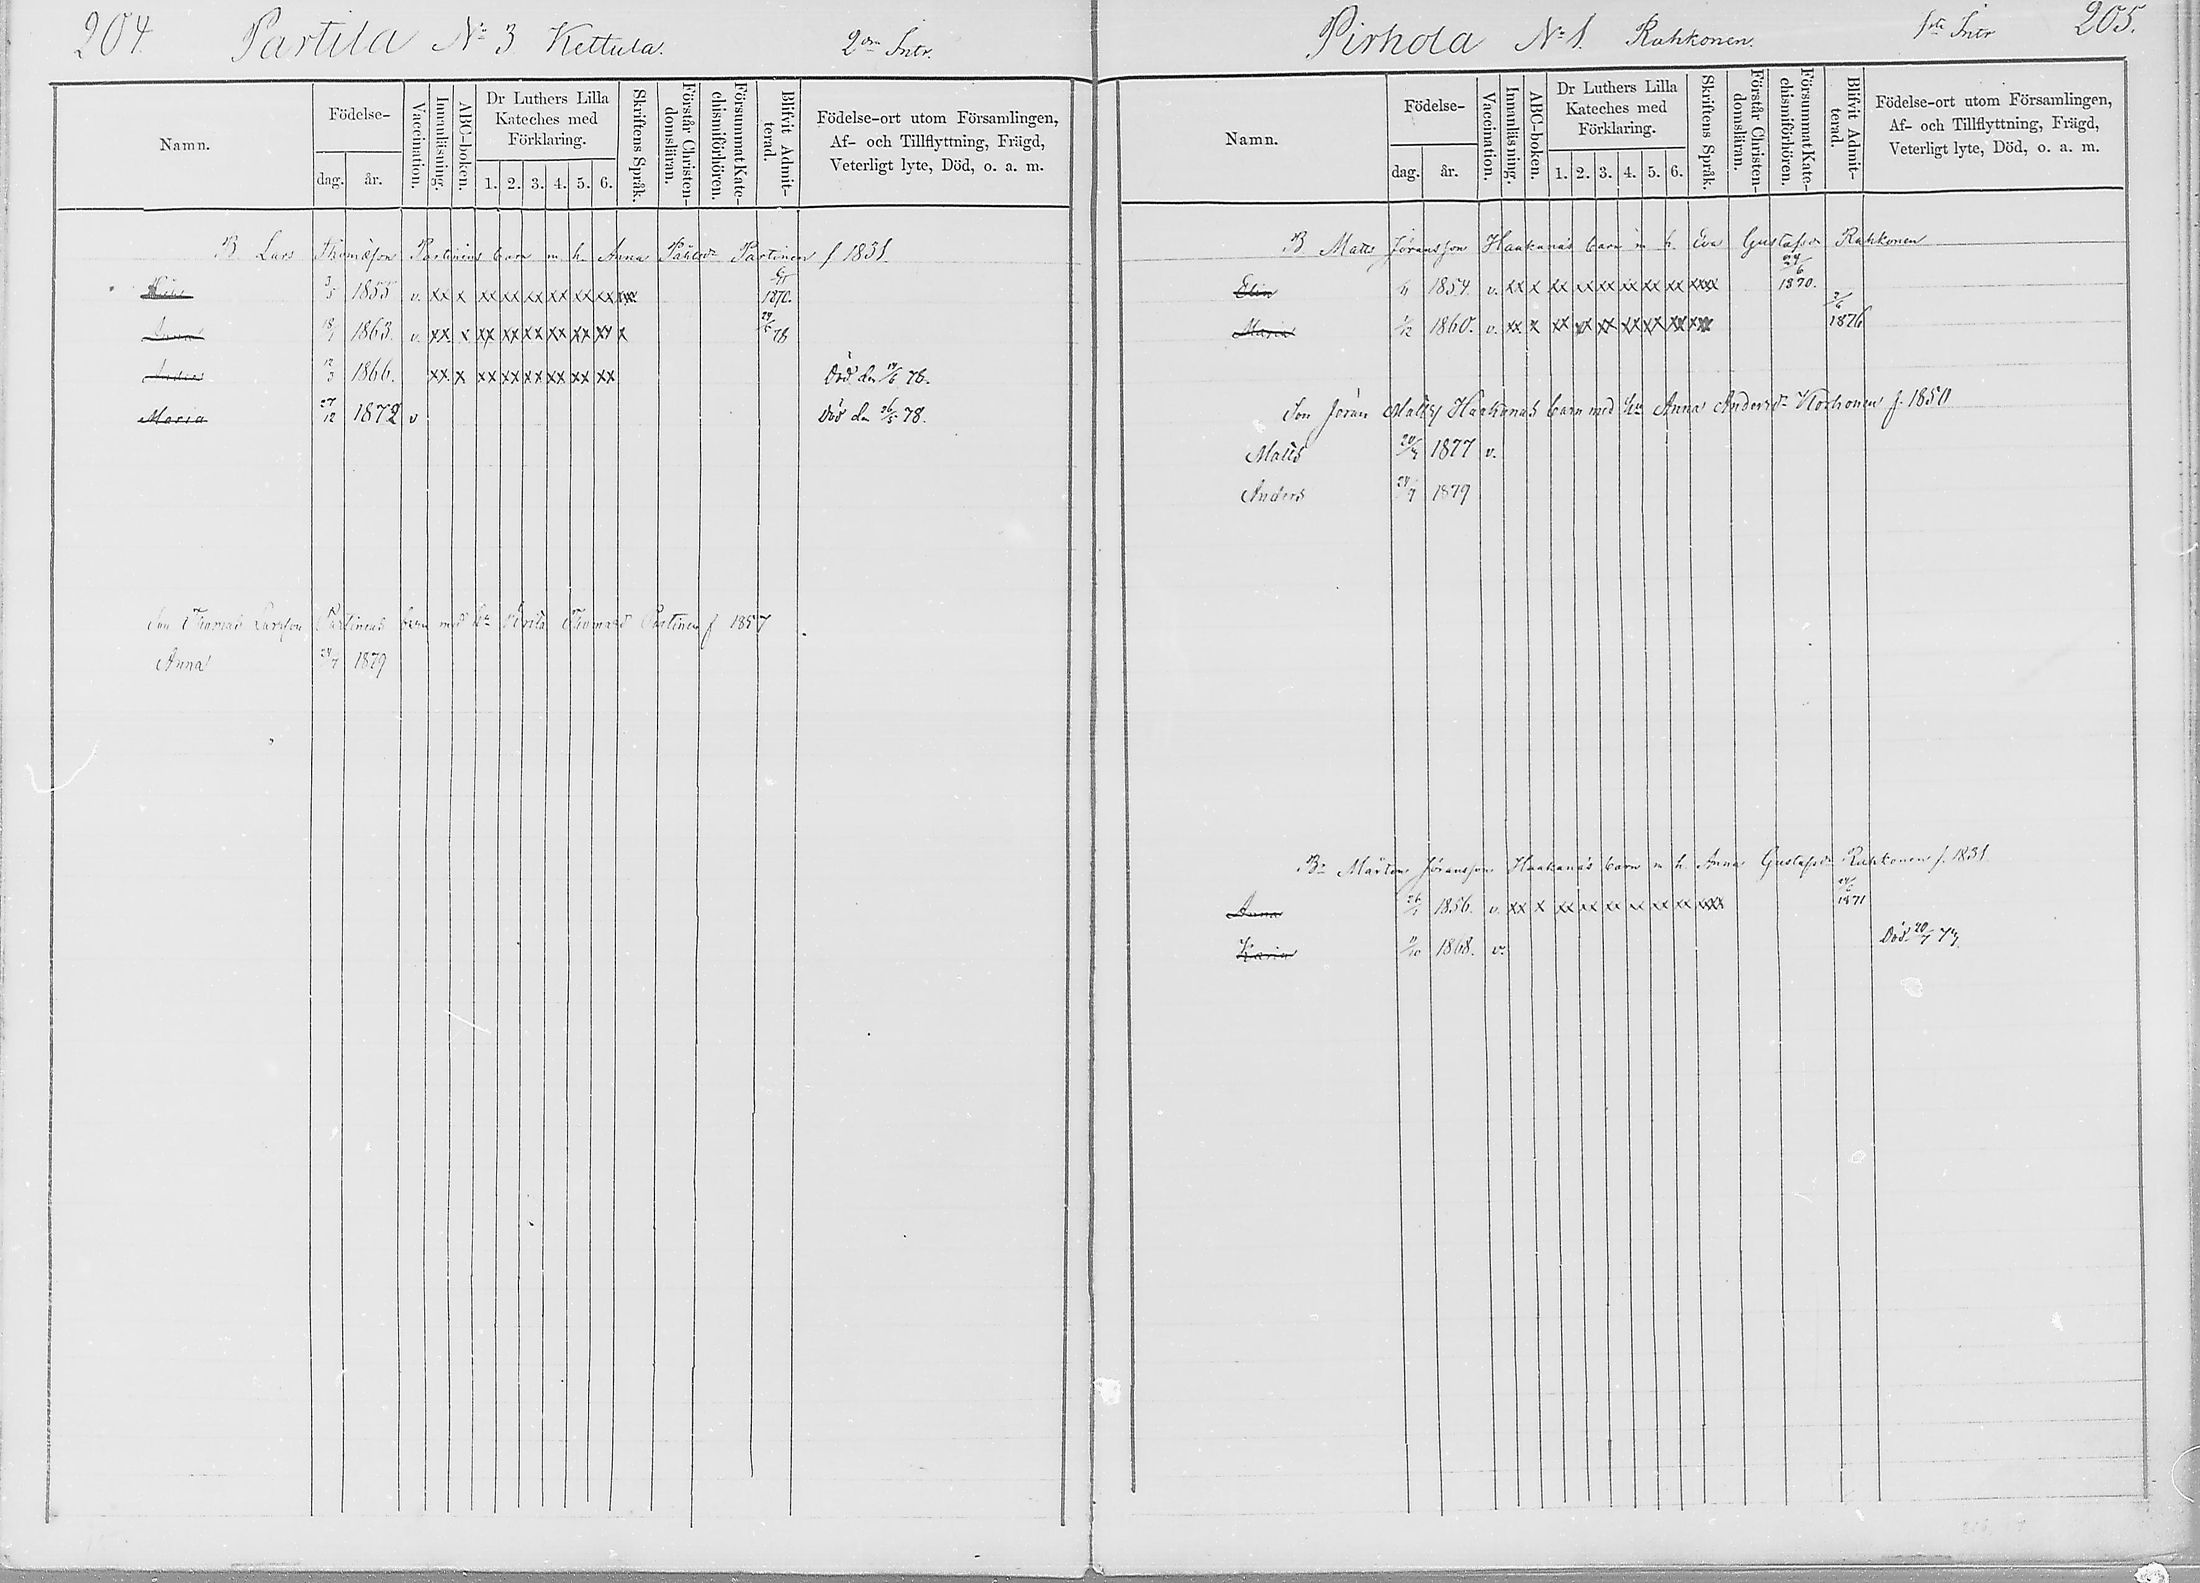 204. Partila No 3 Kettula. 2dra Intr.
Namn. Födelse- dag. år. Vaccination. Innanläsning. ABC-boken. Dr Luthers Lilla Kateches med Förklaring. 1. 2. 3. 4. 5. 6. Skriftens Språk. Förstår Christendomsläran. Försummat Katechismiförhören. Blifvit Admitterad. Födelse-ort utom Församlingen, Af- och Tillflyttning, Frägd, Veterligt lyte, Död, o. a. m.
B. Lars Thomasson Partinens barn m. h. Anna Partinen f 1831.
3/5 1855 v. xx x xx xx xx xx xx xx xxx 1870.
Anna 18/7 1863. v. xx x xx xx xx xx xx xx x 78
12/3 1866. xx x xx xx xx xx xx xx Död den 78.
Maria 27/12 1872 v Död den 26/5 78.
Son Thomas Larsson Partinens barn med Thomasd Partinen f 1857
Anna 24/7 1879
Pirhola No 1. Rahkonen. 1sta Intr 205.
Namn. Födelse- dag. år. Vaccination. Innanläsning. ABC-boken. Dr Luthers Lilla Kateches med Förklaring. 1. 2. 3. 4. 5. 6. Skriftens Språk. Förstår Christendomsläran. Försummat Katechismiförhören. Blifvit Admitterad. Födelse-ort utom Församlingen, Af- och Tillflyttning, Frägd, Veterligt lyte, Död, o. a. m.
B Matts Jöransson Haakanas barn m h. Eva Gustafsdr Rahkonen
Elin 1854. v. xx x xx xx xx xx xx xx xxx 24/6 1870.
Maria 1/12 1860. v. xx x xx xx xx xx xx xx xxx 1876
Son Jöran Haakanas barn med Anna Andersdr f. 1850
Matts 1877 v.
Anders 24/7 1879
Br Mårten Jöransson Haakanas barn m h. Anna Gustafsdr Rahkonen f. 1831.
Anna 26/1 1856. v. xx x xx xx xx xx xx xx xxx 1871
Karin 1868. v. Död 20/7